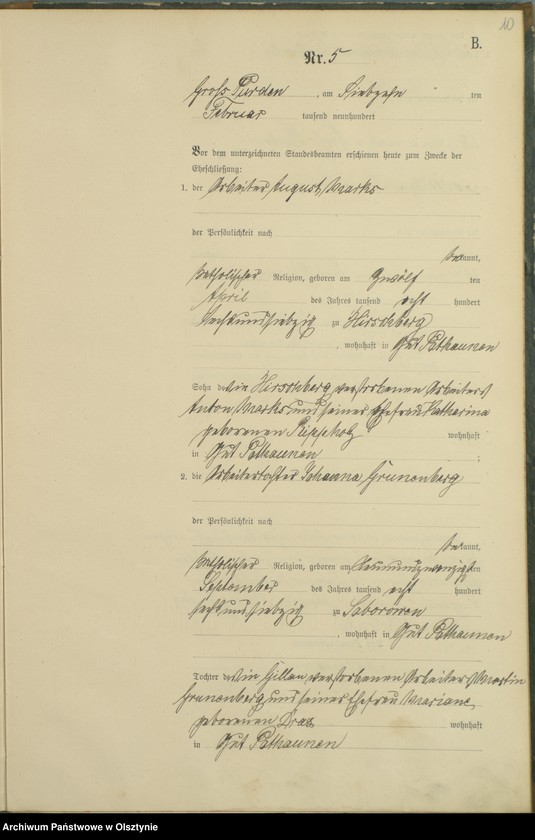 10
B.
Nr. 5
Gross Purden, am Siebzehn ten
Februar tausend neunhundert
Vor dem unterzeichneten Standesbeamten erschienen heute zum Zwecke der
Eheschließung:
1. der Arbeiter August Marks
der Persönlichkeit nach
bekannt,
katholischer Religion, geboren am zwölf ten
April des Jahres tausend acht hundert
sechsundsiebzig zu Hirschberg
, wohnhaft in Gut Pathaunen
Sohn des in Hirschberg verstorbenen Arbeiters
Anton Marks und seiner Ehefrau Katharina
geborenen wohnhaft
in Gut Pathaunen ;
2. die Arbeitertochter Johanna Grunenberg
der Persönlichkeit nach
bekannt,
katholischer Religion, geboren am neunundzwanzigsten
September des Jahres tausend acht hundert
sechsundsiebzig zu
, wohnhaft in Gut Pathaunen
Tochter des in Gillau verstorbenen Arbeiters Martin
Grunenberg und seiner Ehefrau Mariane
geborenen wohnhaft
in Gut Pathaunen
Archiwum Państwowe w Olsztynie